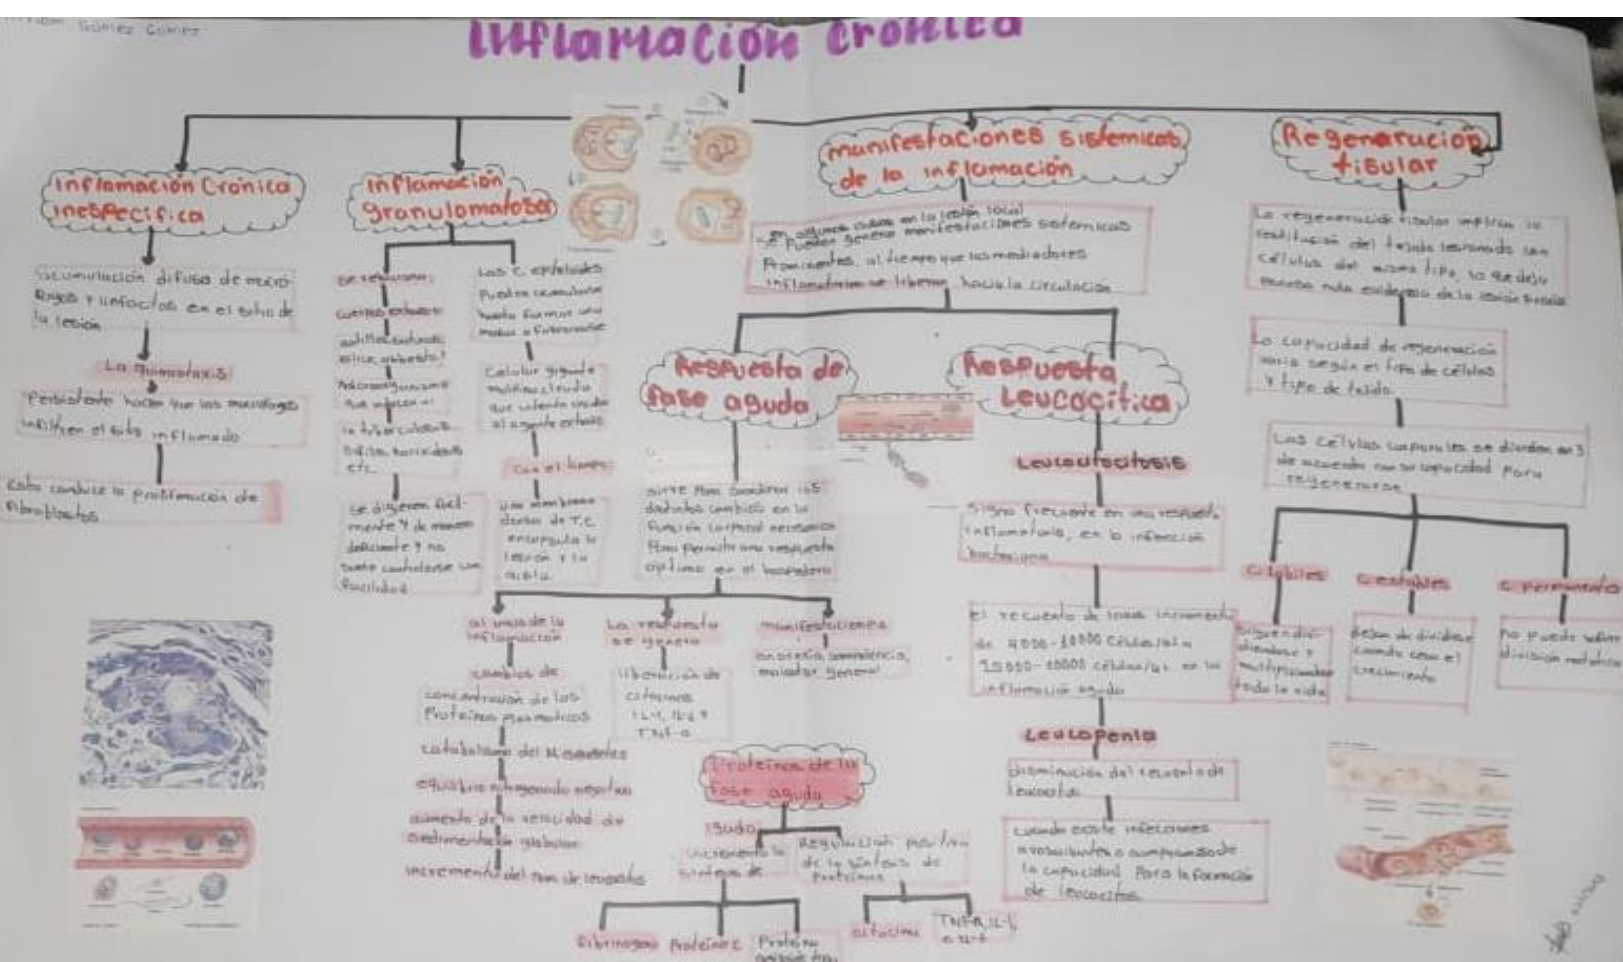 Gómez Gómez
Inflamación Crónica
Inflamación Crónica
inespecífica
acumulación difusa de macró-
fagos y linfocitos en el sitio de
la lesión
La quimiotaxis
Persistente hacen que los macrofagos
infiltren el sitio inflamado
Esto conduce la proliferación de
fibroblastos
Inflamación
granulomatosa
se relaciona:
cuerpos extraños
sílice, asbesto
Microorganismos
que
la tuberculosis
sífilis, sarcoidosis
etc.
se digieren facil-
mente y de manera
deficiente y no
suele controlarse con
facilidad
Las C epiteloides
Pueden acumularse
hasta formar una
masa o fusionarse
Celular gigante
multinucleada
que intenta
al agente extraño
Con el tiempo:
una membrana
densa de T.C.
encapsula la
lesión y la
aisla.
manifestaciones sistemicas
de la inflamación
en algunos casos en la lesión local
se pueden generar manifestaciones sistemicas
Prominentes, al tiempo que los mediadores
inflamatorios se liberan hacia la circulación
Respuesta de
fase aguda
sirve para
distintos cambios en la
función corporal necesarios
Para permitir una respuesta
óptima en el hospedero
al inicio de la
inflamación
cambios de
concentración de las
Proteínas plasmaticas
catabolismo del M.esqueletico
equilibrio nitrogenado negativo
aumento de la velocidad de
sedimentación globular
incremento del num de leucocitos
La respuesta
se genera
liberación de
citocinas
IL-1, IL-6 y
TNF-α
manifestaciones
anorexia, somnolencia,
malestar general
Proteínas de la
fase aguda
incremento la
sintesis de
Fibrinogeno
Proteína C
Proteína
Regulación positiva
de la síntesis de
Proteínas
citocina
TNF-α, IL-1,
o IL-6
Respuesta
Leucocítica
Leucocitosis
Signo frecuente en una respuesta
inflamatoria, en la infección
bacteriana
El recuento de
de 4000-10000 células/
15000-20000 células/μL en la
inflamación aguda
Leucopenia
disminución del recuento de
leucocitos
cuando existe infecciones
avasallantes o compromiso de
la capacidad Para la formación
de leucocitos
Regeneración
tisular
La regeneración tisular implica la
restitución del tejido lesionado con
células del mismo tipo, lo que deja
evidencia de la lesión previa
La capacidad de regeneración
varia según el tipo de células
y tipo de tejido.
Las células corporales se dividen en 3
de acuerdo con su capacidad Para
regenerarse
C. lábiles
siguen divi-
diendose y
multiplicandose
toda la vida
C. estables
dejan de dividirse
cuando cesa el
crecimiento
C permanentes
no puede sufrir
división mitótica